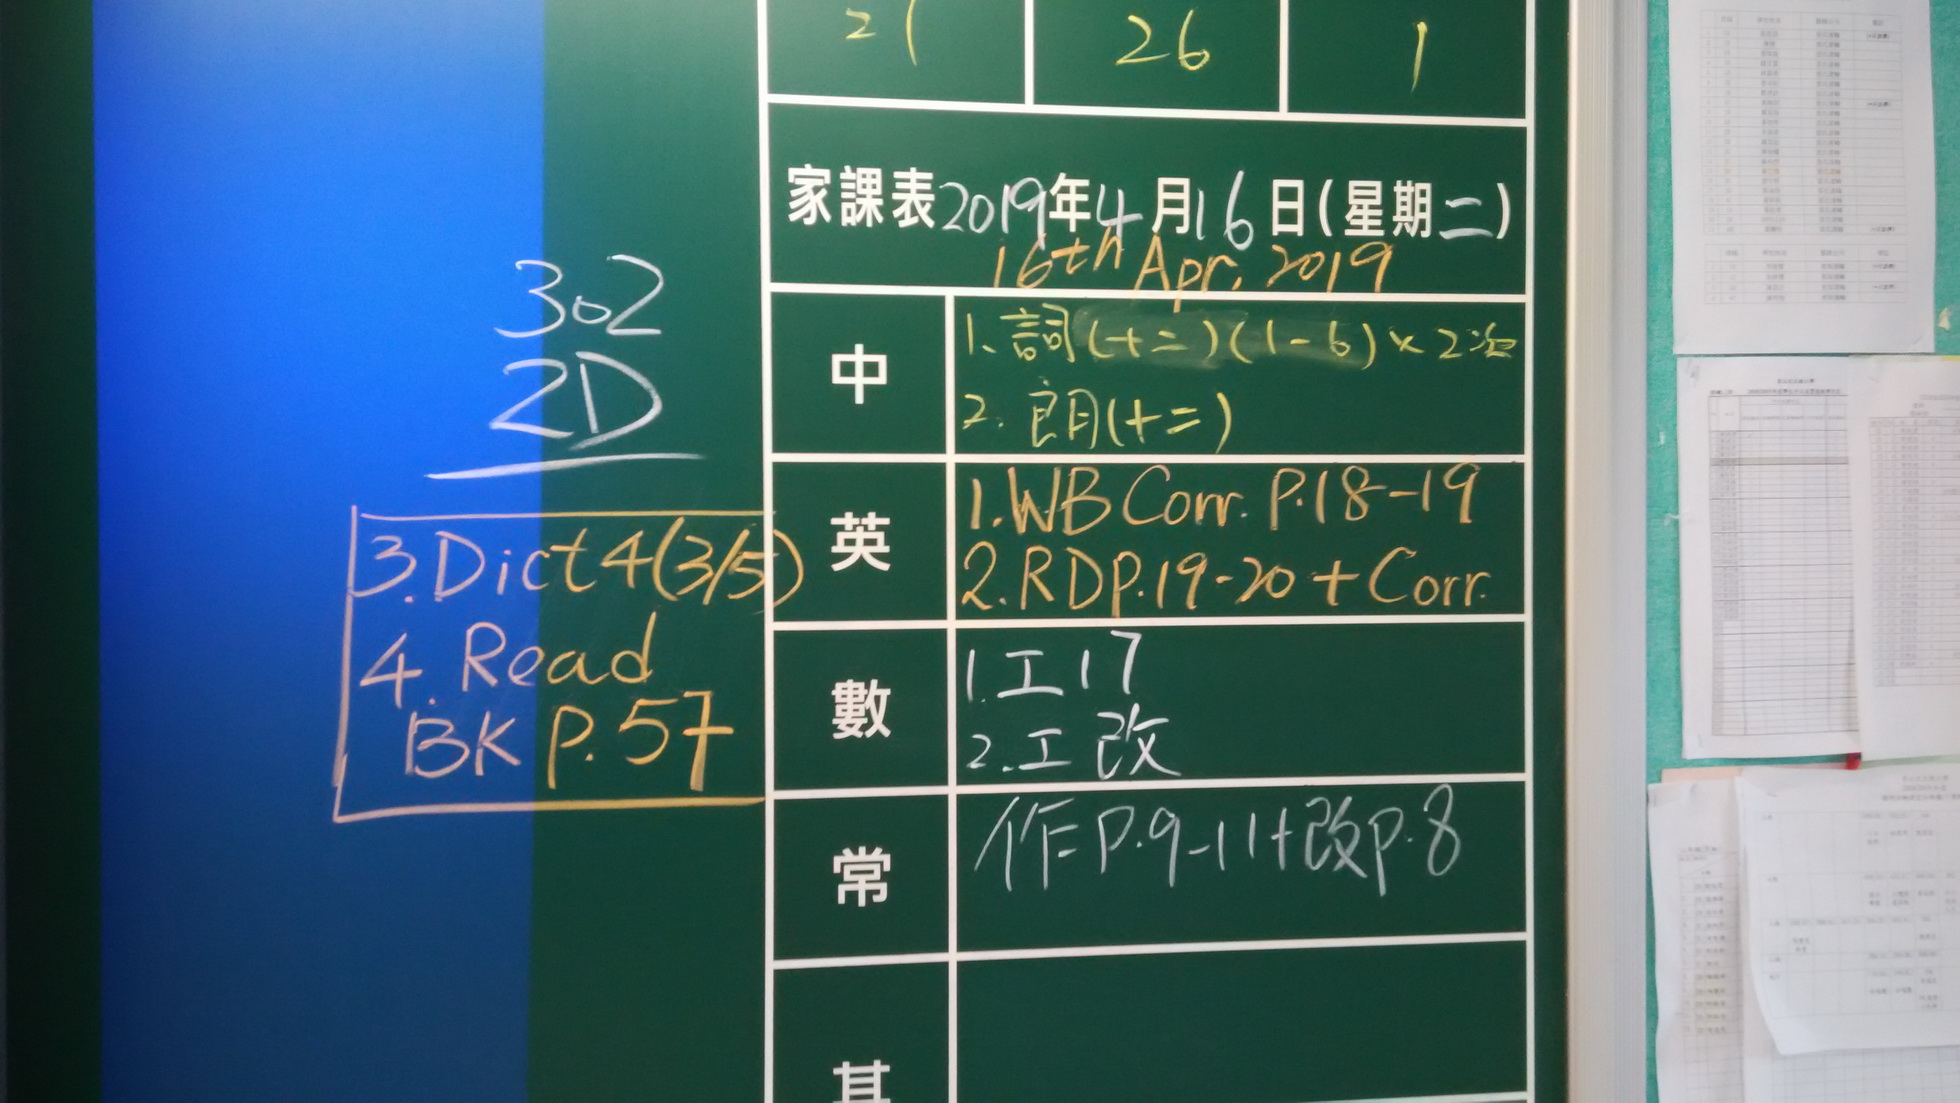 21 26 1
家課表2019年4月16日(星期二)
16th Apr, 2019
302
2D
中
1. 詞(十二)(1-6)×2次
2. 朗(十二)
英
1. WB Corr. P.18-19
2. RD P.19-20 + Corr.
3. Dict 4 (3/5)
4. Read
BK P.57
數
1. 工17
2. 工改
常
作P.9-11+改P.8
其